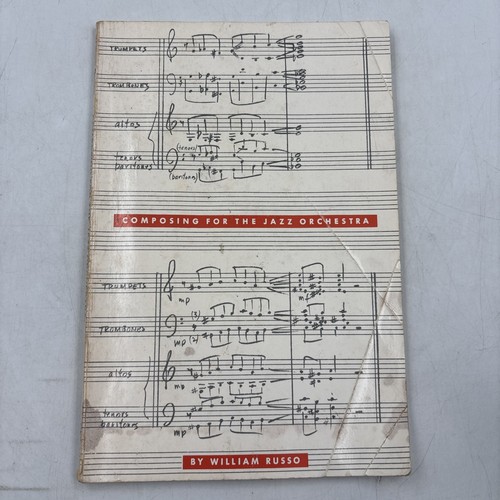 TRUMPETS
TROMBONES
altos
(tenors)
tenors
baritones
(baritones)
COMPOSING FOR THE JAZZ ORCHESTRA
TRUMPETS
mp
mf
(3)
TROMBONES
mp (2)
altos
mp
tenors
baritones
mp
BY WILLIAM RUSSO